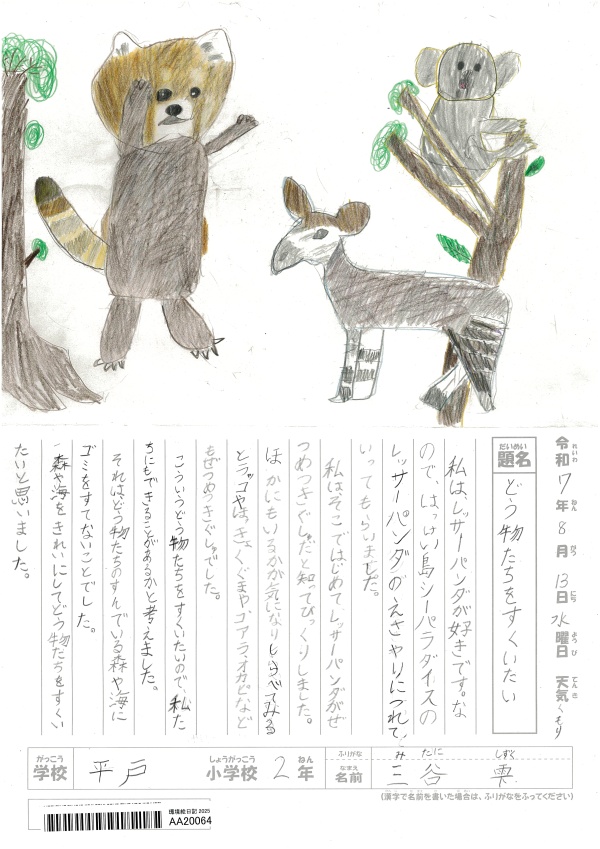 令和7年8月13日水曜日 天気くもり
れいわ ねん がつ にち ようび てんき
だいめい
題名 どう物たちをすくいたい
私は、レッサーパンダが好きです。な
ので、はっけい島シーパラダイスの
レッサーパンダのえさやりにつれて
いってもらいました。
私はそこではじめてレッサーパンダがぜ
つめつきぐしゅだと知ってびっくりしました。
ほかにもいるかが気になりしらべてみる
とラッコやほっきょくぐまや、コアラ、オカピなど
もぜつめつきぐしゅでした。
こういうどう物たちをすくいたいので、私た
ちにもできることがあるかと考えました。
それはどう物たちのすんでいる森や海に
ゴミをすてないことでした。
森や海をきれいにしてどう物たちをすくい
たいと思いました。
がっこう しょうがっこう ねん ふりがな みたに しずく
学校 平戸 小学校 2年 なまえ 名前 三谷 雫
(漢字で名前を書いた場合は、ふりがなをふってください)
環境絵日記 2025
AA20064